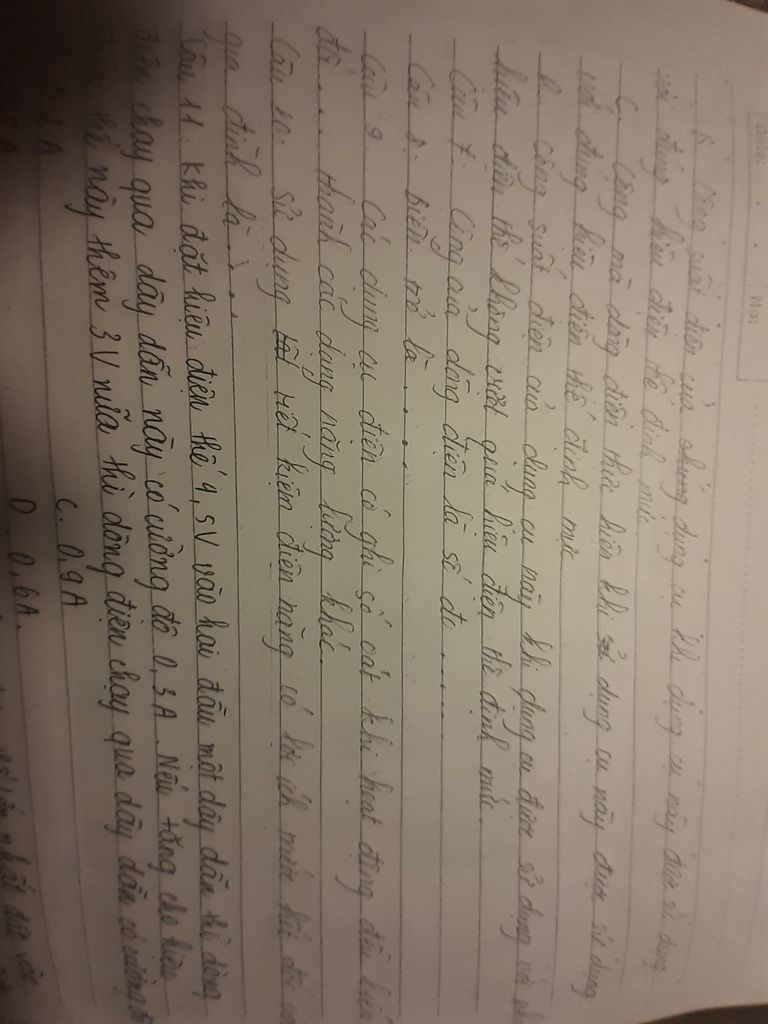 No:
B. Công suất điện của dụng cụ khi dụng cụ này được sử dụng
với đúng hiệu điện thế định mức
C. Công mà dòng điện thực hiện khi dụng cụ này được sử dụng
với đúng hiệu điện thế định mức
D. Công suất điện của dụng cụ này khi dụng cụ được sử dụng với
hiệu điện thế không vượt quá hiệu điện thế định mức.
Câu 7. Công của dòng điện là số đo.......
Câu 8. Biến trở là........
Câu 9. Các dụng cụ điện có ghi số oát khi hoạt động đều biến
đổi.... thành các dạng năng lượng khác.
Câu 10. Sử dụng tiết kiệm điện năng có lợi ích đối
gia đình là.....
Câu 11. Khi đặt hiệu điện thế 4,5V vào hai đầu một dây dẫn thì dòng
điện chạy qua dây dẫn này có cường độ 0,3A. Nếu tăng cho hiệu
điện thế này thêm 3V nữa thì dòng điện chạy qua dây dẫn có cường độ
C. 0,9A
D. 0,6A.